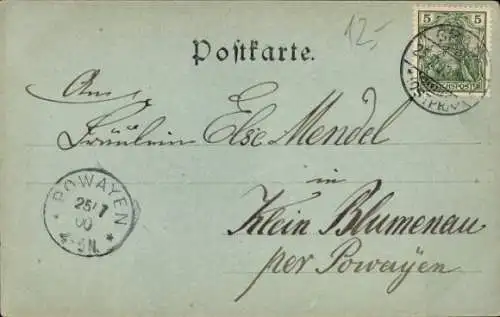 12,-
Postkarte.
5
An
Fräulein Else Mendel
in
Klein Blumenau
per Powayen
POWAYEN
25/7
00
4-5N.